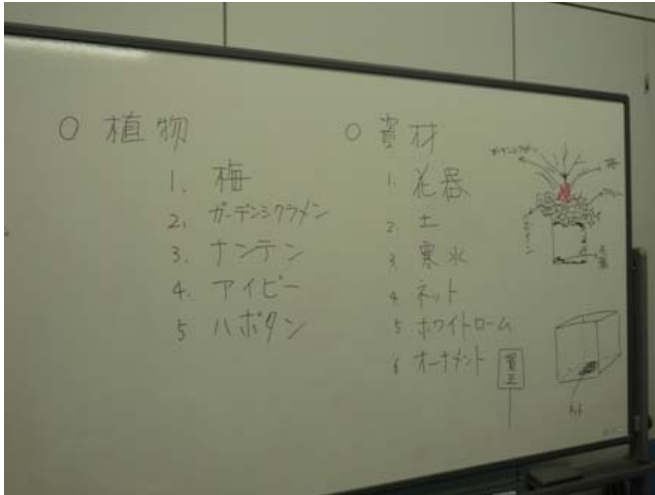 ○ 植物
1. 梅
2. ガーデンシクラメン
3. ナンテン
4. アイビー
5 ハボタン
○ 資材
1. 花器
2. 土
3. 寒水
4 ネット
5. ホワイトローム
6 オーナメント
賀正
ネット